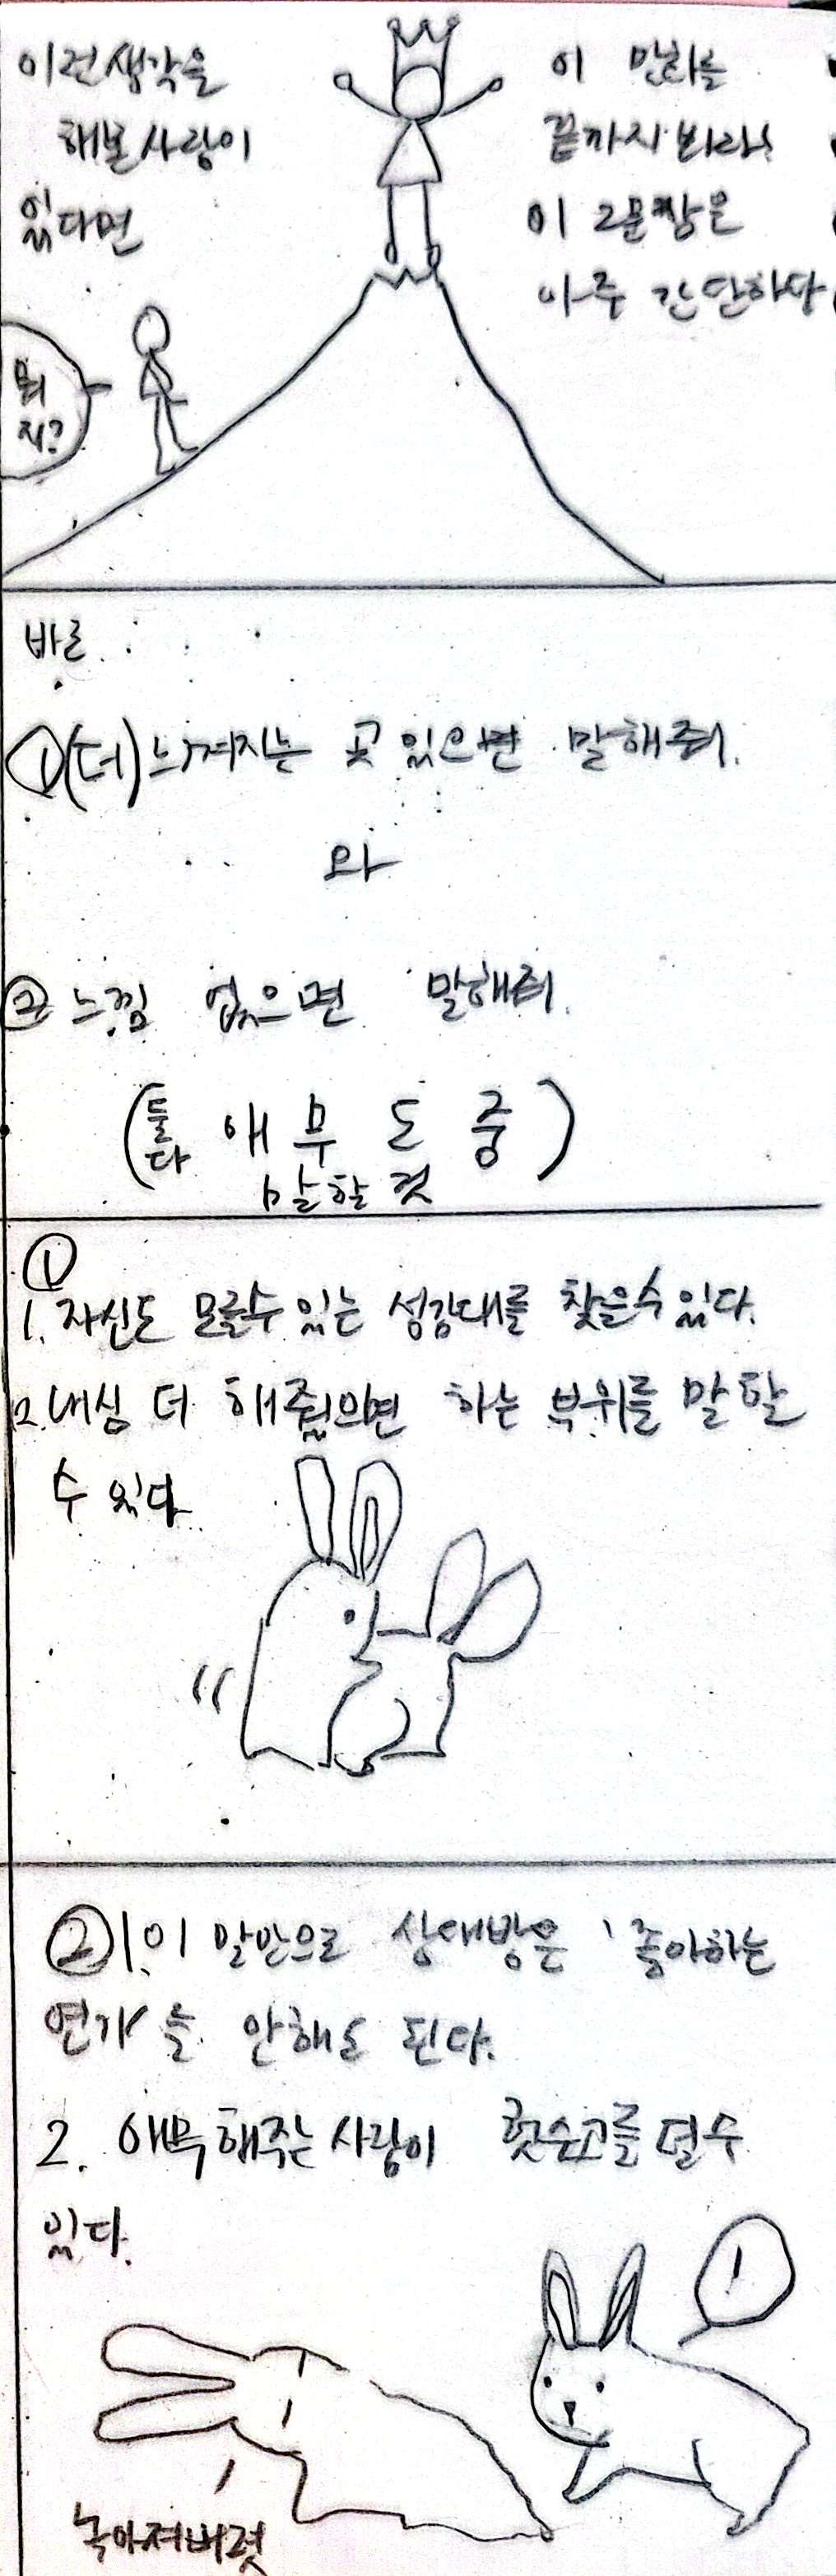 이런생각을
해본사람이
있다면
이 만화를
끝까지 봐라!
이 2문장은
아주 간단하다
뭐
지?
바로
①(더)느껴지는 곳 있으면 말해줘.
와
② 느낌 없으면 말해줘.
(둘다 애무도중)
말할것
①
1. 자신도 모를수 있는 성감대를 찾을수 있다.
2. 내심 더 해줬으면 하는 부위를 말할
수 있다
② 1. 이 말만으로 상대방은 '좋아하는
연기'를 안해도 된다.
2. 애무해주는 사람이 헛수고를 덜수
있다.
!
녹아져버렷